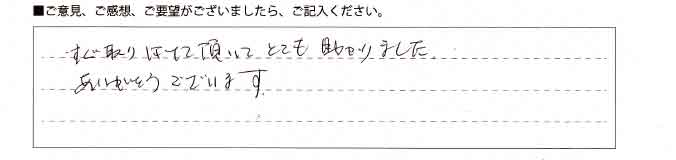 ■ご意見、ご感想、ご要望がございましたら、ご記入ください。
すぐ取りはずして頂いてとても助かりました。
ありがとうございます。